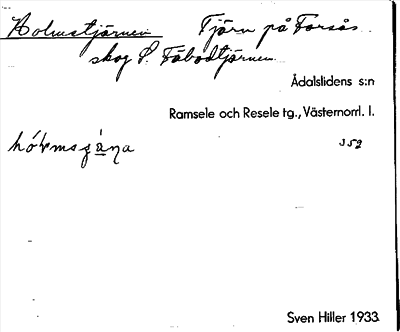 Holmstjärnen Tjärn på Forsås
skog S. Fäbodtjärnen
Ådalslidens s:n
Ramsele och Resele tg., Västernorrl. l.
J52
Sven Hiller 1933